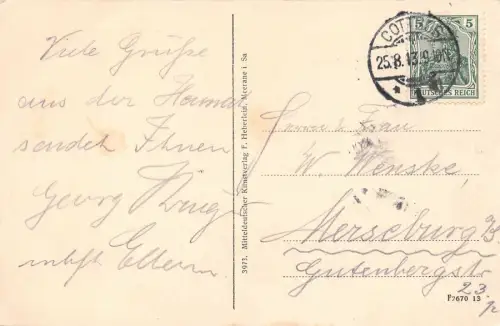 Viele Grüße
aus der Heimat
sendet Ihnen
Georg Krüger
nebst Eltern.
3971. Mitteldeutscher Kunstverlag F. Heberlein, Meerane i Sa
COTTBUS
25.8.13.
5
DEUTSCHES REICH
Herrn u. Frau
W. Wenske,
Merseburg
Gutenbergstr
23
F7670 13